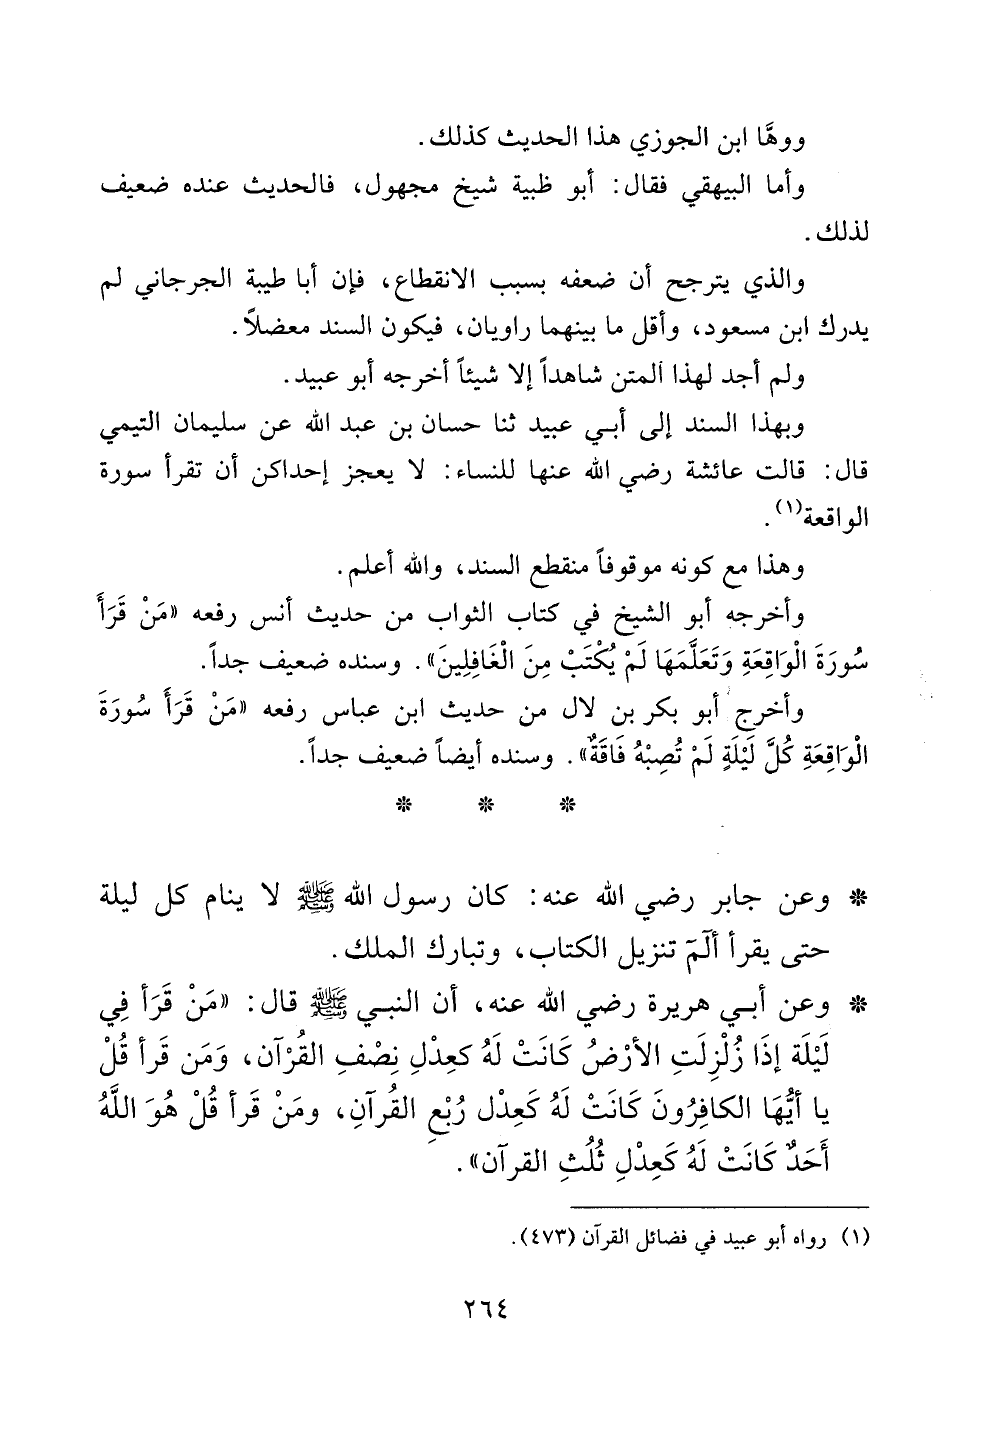 ووهَّا ابن الجوزي هذا الحديث كذلك.
وأما البيهقي فقال: أبو ظبية شيخ مجهول، فالحديث عنده ضعيف
لذلك.
والذي يترجح أن ضعفه بسبب الانقطاع، فإن أبا طيبة الجرجاني لم
يدرك ابن مسعود، وأقل ما بينهما راويان، فيكون السند معضلاً.
ولم أجد لهذا المتن شاهداً إلا شيئاً أخرجه أبو عبيد.
وبهذا السند إلى أبي عبيد ثنا حسان بن عبد الله عن سليمان التيمي
قال: قالت عائشة رضي الله عنها للنساء: لا يعجز إحداكن أن تقرأ سورة
الواقعة(١).
وهذا مع كونه موقوفاً منقطع السند، والله أعلم.
وأخرجه أبو الشيخ في كتاب الثواب من حديث أنس رفعه «مَنْ قَرَأَ
سُورَةَ الْوَاقِعَةِ وَتَعَلَّمَهَا لَمْ يُكْتَبْ مِنَ الْغَافِلِينَ». وسنده ضعيف جداً.
وأخرج أبو بكر بن لال من حديث ابن عباس رفعه «مَنْ قَرَأَ سُورَةَ
الْوَاقِعَةِ كُلَّ لَيْلَةٍ لَمْ تُصِبْهُ فَاقَةٌ». وسنده أيضاً ضعيف جداً.
* * *
* وعن جابر رضي الله عنه: كان رسول الله ﷺ لا ينام كل ليلة
حتى يقرأ ألٓمٓ تنزيل الكتاب، وتبارك الملك.
* وعن أبي هريرة رضي الله عنه، أن النبي ﷺ قال: «مَنْ قَرَأَ فِي
لَيْلَة إذَا زُلْزِلَتِ الأرْضُ كَانَتْ لَهُ كعِدْلِ نِصْفِ القُرْآن، وَمَن قَرأ قُلْ
يا أيُّهَا الكافِرُونَ كَانَتْ لَهُ كَعِدْل رُبْعِ القُرآنِ، ومَنْ قَرأ قُلْ هُوَ اللَّهُ
أَحَدٌ كَانَتْ لَهُ كَعِدْلِ ثُلُثِ القرآن».
(١) رواه أبو عبيد في فضائل القرآن (٤٧٣).
٢٦٤